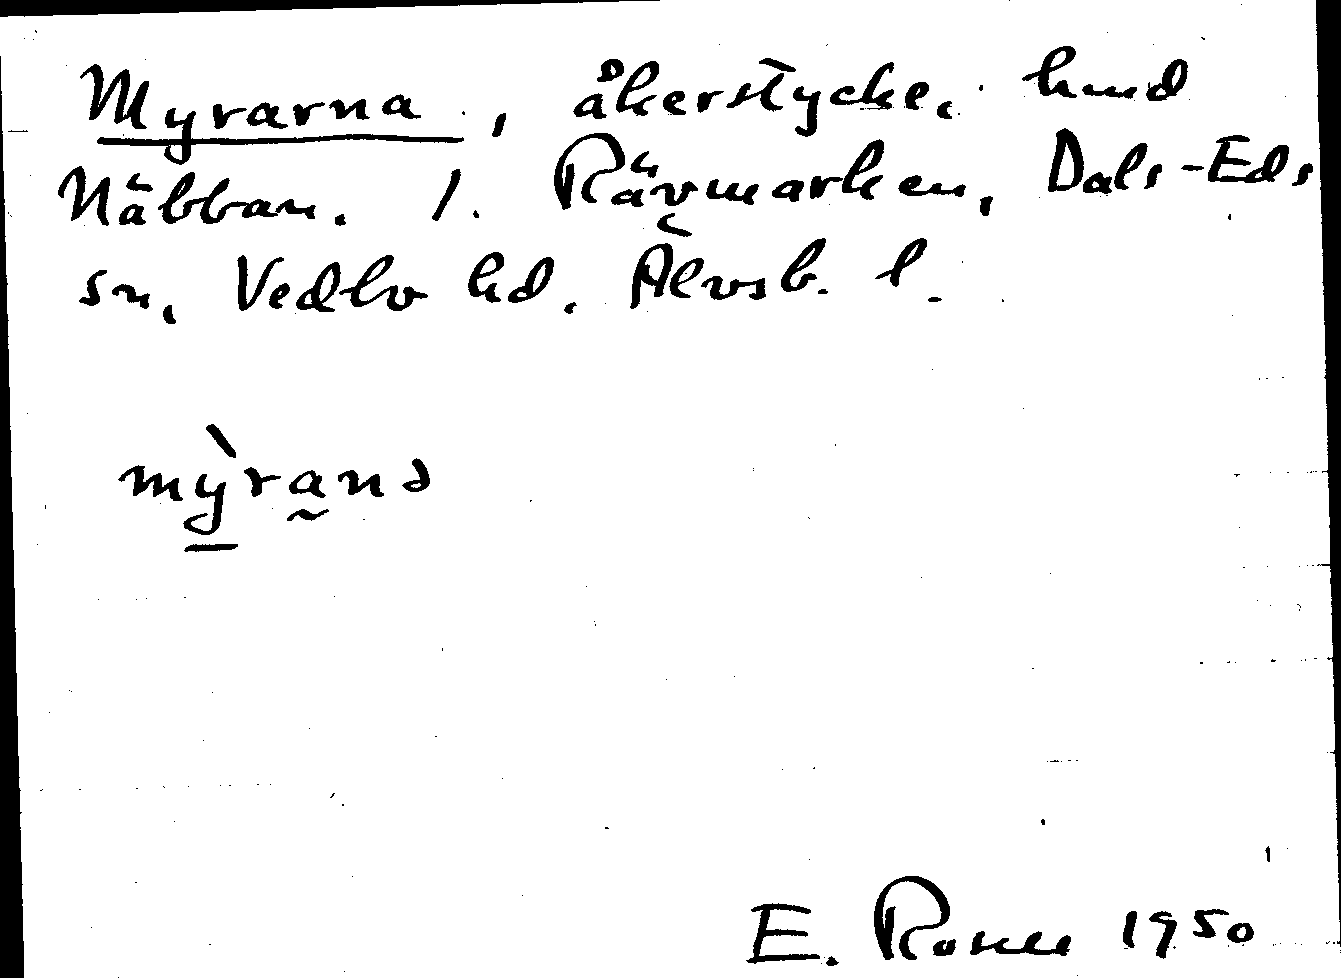 Myrarna, åkerstycke, hmd
Näbban. 1. Rävmarken, Dals-Eds
sn, Vedbo hd. Älvsb. l.
mỳranə
E. Rosell 1950